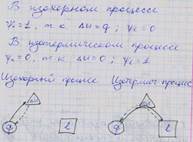 В изохорном процессе
γᵢ=1, т.к. ΔU=q; γₑ=0
В изотермическом процессе
γᵢ=0, т.к. ΔU=0; γₑ=1
Изохорный процесс Изотермич. процесс
ΔU ΔU
q l q l